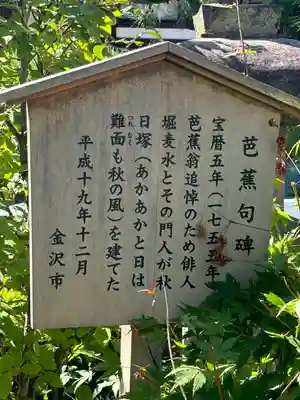 芭蕉句碑
宝暦五年(一七五五年)
芭蕉翁追悼のため俳人
堀麦水とその門人が秋
日塚(あかあかと日は
難面も秋の風)を建てた
つれなく
平成十九年十二月
金沢市